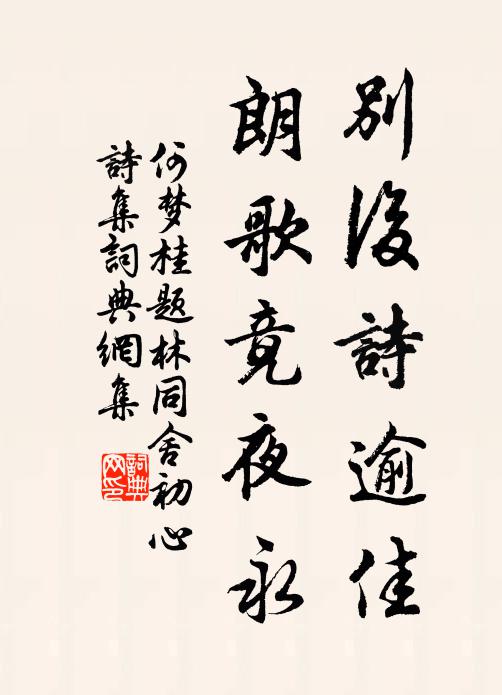 別後詩逾佳
朗歌竟夜永
何梦桂題林同舍初心
詩集詞典網集
詞典
网印